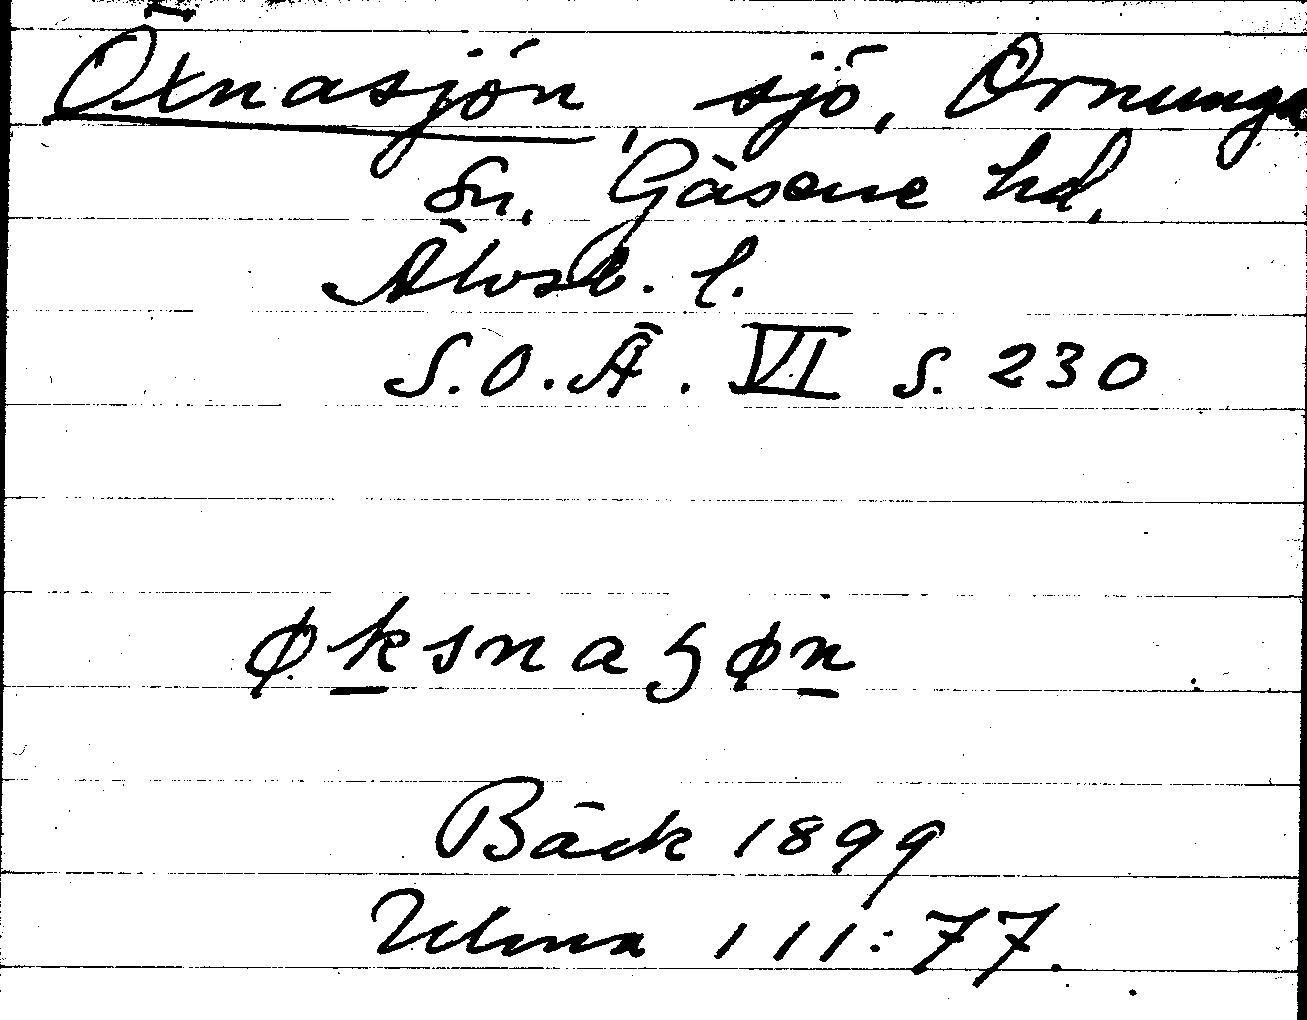 Öxnasjön, sjö, Ornunga
Sn, Gäsene hd,
Älvsb. l.
S.O.Ä. VI s. 230
øksnaȿøn
Bäck 1899
Ulma 111:77.